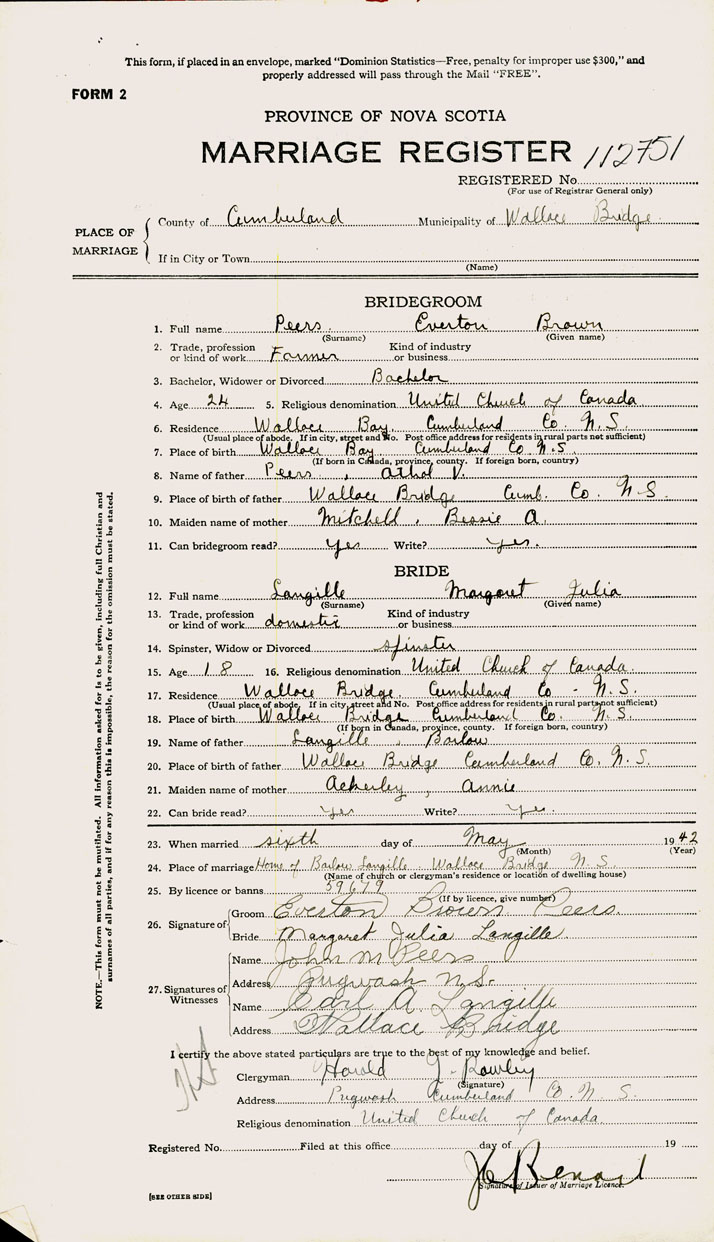 This form, if placed in an envelope, marked "Dominion Statistics—Free, penalty for improper use $300," and
properly addressed will pass through the Mail "FREE".
FORM 2
PROVINCE OF NOVA SCOTIA
MARRIAGE REGISTER 112751
REGISTERED No.
(For use of Registrar General only)
PLACE OF MARRIAGE
County of Cumberland Municipality of Wallace Bridge
If in City or Town
(Name)
BRIDEGROOM
1. Full name Peers Everton Brown
(Surname) (Given name)
2. Trade, profession or kind of work Farmer Kind of industry or business
3. Bachelor, Widower or Divorced Bachelor
4. Age 24 5. Religious denomination United Church of Canada
6. Residence Wallace Bay, Cumberland Co. N.S.
(Usual place of abode. If in city, street and No. Post office address for residents in rural parts not sufficient)
7. Place of birth Wallace Bay Cumberland Co. N.S
(If born in Canada, province, county. If foreign born, country)
8. Name of father Peers, Athol V.
9. Place of birth of father Wallace Bridge Cumb. Co. N.S
10. Maiden name of mother Mitchell, Bessie A.
11. Can bridegroom read? yes Write? yes.
BRIDE
12. Full name Langille Margaret Julia
(Surname) (Given name)
13. Trade, profession or kind of work domestic Kind of industry or business
14. Spinster, Widow or Divorced spinster
15. Age 18 16. Religious denomination United Church of Canada.
17. Residence Wallace Bridge, Cumberland Co - N.S.
(Usual place of abode. If in city, street and No. Post office address for residents in rural parts not sufficient)
18. Place of birth Wallace Bridge Cumberland Co. N.S.
(If born in Canada, province, county. If foreign born, country)
19. Name of father Langille, Barlow
20. Place of birth of father Wallace Bridge Cumberland Co. N.S.
21. Maiden name of mother Ackerley, Annie
22. Can bride read? yes Write? yes.
23. When married sixth day of May 1942
(Month) (Year)
24. Place of marriage Home of Barlow Langille Wallace Bridge N.S.
(Name of church or clergyman's residence or location of dwelling house)
25. By licence or banns 59679
(If by licence, give number)
26. Signature of
Groom Everton Brown Peers.
Bride Margaret Julia Langille
27. Signatures of Witnesses
Name John M Peers
Address Pugwash N.S.
Name Earl A. Langille
Address Wallace Bridge
I certify the above stated particulars are true to the best of my knowledge and belief.
Clergyman Harold J. Rowley
(Signature)
Address Pugwash Cumberland Co. N.S.
Religious denomination United Church of Canada
Registered No. Filed at this office day of 19
Signature of Issuer of Marriage Licence.
[SEE OTHER SIDE]
NOTE.—This form must not be mutilated. All information asked for is to be given, including full Christian and
surnames of all parties, and if for any reason this is impossible, the reason for the omission must be stated.